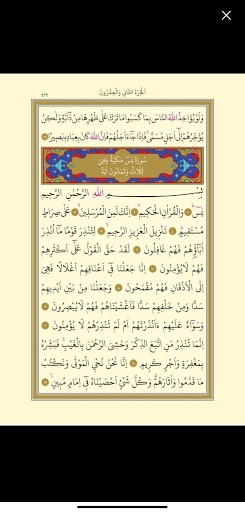 اَلْجُزْءُ الثَّانِي وَالْعِشْرُونَ
٤٣٩
وَلَوْ يُؤَاخِذُ اللّٰهُ النَّاسَ بِمَا كَسَبُوا مَا تَرَكَ عَلٰى ظَهْرِهَا مِنْ دَٓابَّةٍ وَلٰكِنْ
يُؤَخِّرُهُمْ اِلٰٓى اَجَلٍ مُسَمًّى فَاِذَا جَٓاءَ اَجَلُهُمْ فَاِنَّ اللّٰهَ كَانَ بِعِبَادِهِ بَصِيرًا
سُورَةُ يٰسٓ مَكِّيَّةٌ وَهِىَ
ثَلَاثٌ وَثَمَانُونَ اٰيَةً
بِسْمِ اللّٰهِ الرَّحْمٰنِ الرَّحِيمِ
يٰسٓ وَالْقُرْاٰنِ الْحَكِيمِ اِنَّكَ لَمِنَ الْمُرْسَلِينَ عَلٰى صِرَاطٍ
مُسْتَقِيمٍ تَنْزِيلَ الْعَزِيزِ الرَّحِيمِ لِتُنْذِرَ قَوْمًا مَٓا اُنْذِرَ
اٰبَٓاؤُهُمْ فَهُمْ غَافِلُونَ لَقَدْ حَقَّ الْقَوْلُ عَلٰٓى اَكْثَرِهِمْ
فَهُمْ لَا يُؤْمِنُونَ اِنَّا جَعَلْنَا فِٓى اَعْنَاقِهِمْ اَغْلَالًا فَهِىَ
اِلَى الْاَذْقَانِ فَهُمْ مُقْمَحُونَ وَجَعَلْنَا مِنْ بَيْنِ اَيْدِيهِمْ
سَدًّا وَمِنْ خَلْفِهِمْ سَدًّا فَاَغْشَيْنَاهُمْ فَهُمْ لَا يُبْصِرُونَ
وَسَوَٓاءٌ عَلَيْهِمْ ءَاَنْذَرْتَهُمْ اَمْ لَمْ تُنْذِرْهُمْ لَا يُؤْمِنُونَ
اِنَّمَا تُنْذِرُ مَنِ اتَّبَعَ الذِّكْرَ وَخَشِىَ الرَّحْمٰنَ بِالْغَيْبِ فَبَشِّرْهُ
بِمَغْفِرَةٍ وَاَجْرٍ كَرِيمٍ اِنَّا نَحْنُ نُحْيِ الْمَوْتٰى وَنَكْتُبُ
مَا قَدَّمُوا وَاٰثَارَهُمْ وَكُلَّ شَىْءٍ اَحْصَيْنَاهُ فِٓى اِمَامٍ مُبِينٍ